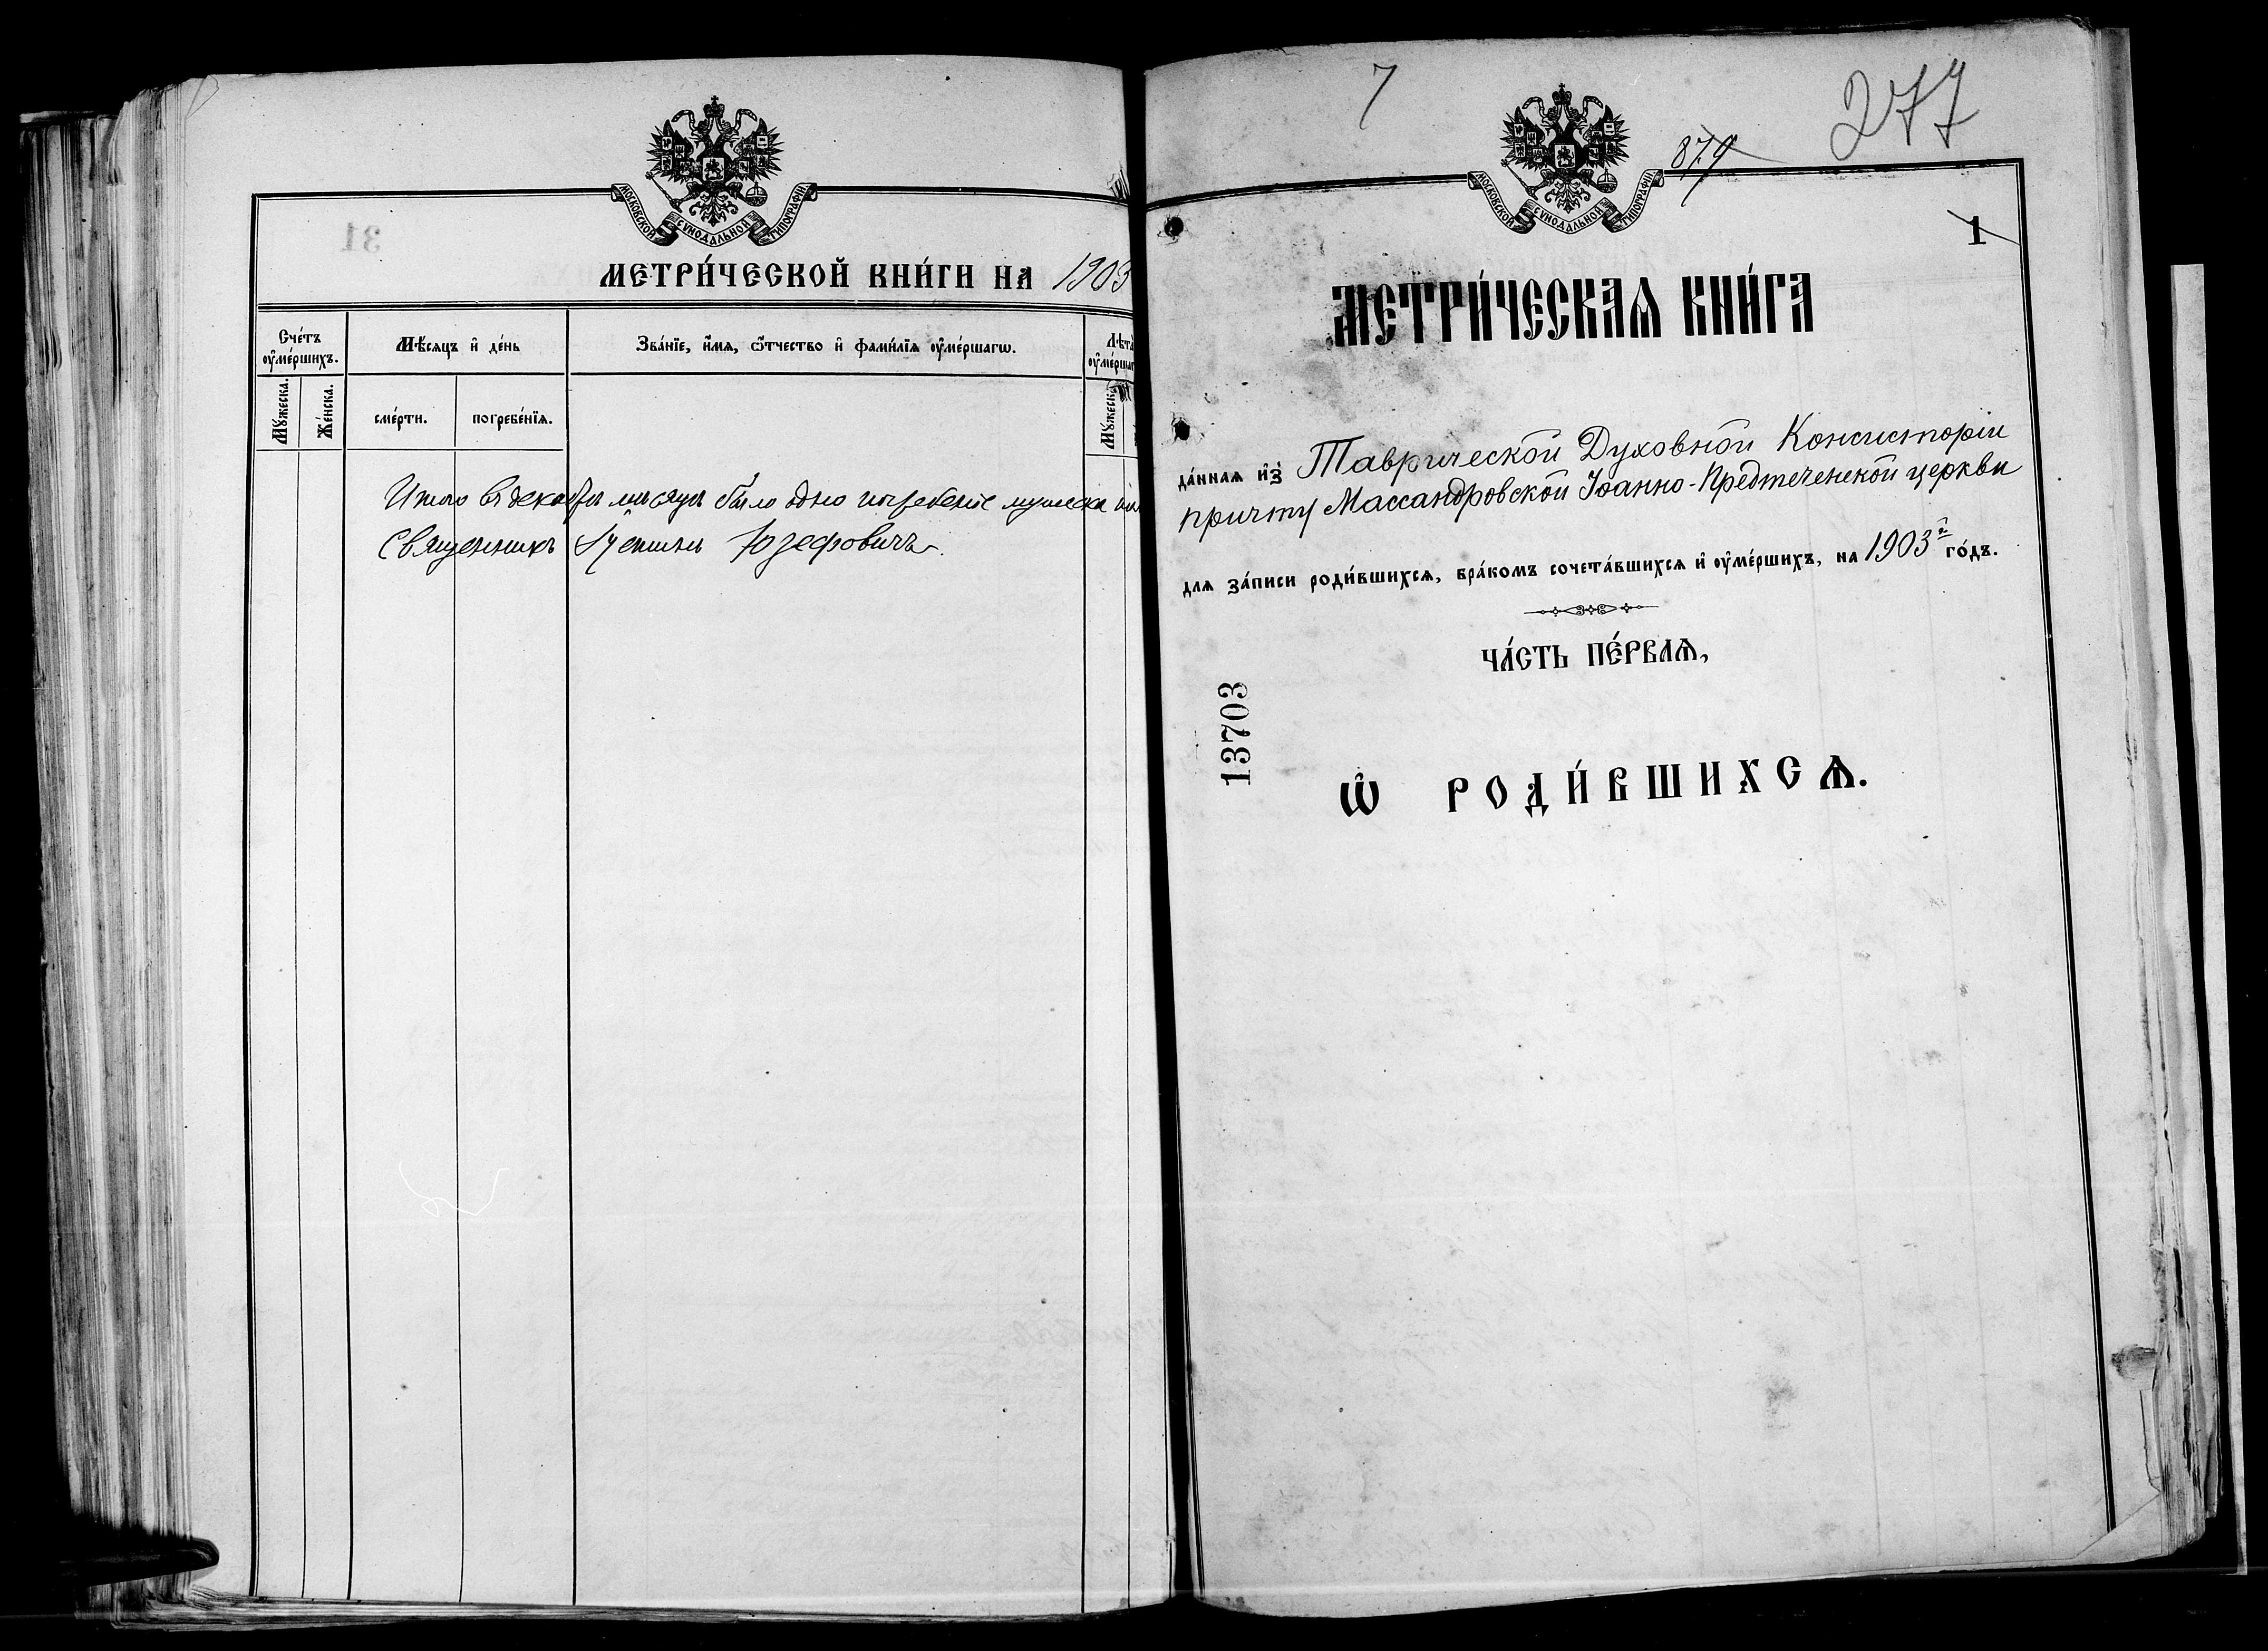 МОСКОВСКОЙ СѴНОДАЛЬНОЙ ТИПОГРАФІИ
31
МЕТРИ́ЧЕСКОЙ КНИ́ГИ НА 1903
Сче́тъ ᲂу҆ме́ршихъ.
Мѣ́сяцъ и҆ де́нь
Зва́нїе, и҆́мѧ, ѻ҆́тчество и҆ фами́лїѧ ᲂу҆ме́ршагѡ.
Лѣта ᲂу҆ме́ршаг
Мꙋ́жеска.
Же́нска.
сме́рти.
погребе́нїѧ.
Мꙋ́жеска
Итого въ декабрѣ мѣсяцѣ было одно погребеніе мужеска
Священникъ Іустинъ Юзефовичъ.
7
277
879
МОСКОВСКОЙ СѴНОДАЛЬНОЙ ТИПОГРАФІИ
1
МЕТРИ́ЧЕСКАѦ КНИ́ГА
да́ннаѧ и҆з̾ Таврической Духовной Консисторіи
причту Массандровской Іоанно-Предтеченской церкви
длѧ за́писи роди́вшихсѧ, бра́комъ сочета́вшихсѧ и҆ ᲂу҆ме́ршихъ, на 1903й го́дъ.
ЧА́СТЬ ПЕ́РВАѦ,
13703
Ѡ҆ РОДИ́ВШИХСѦ.